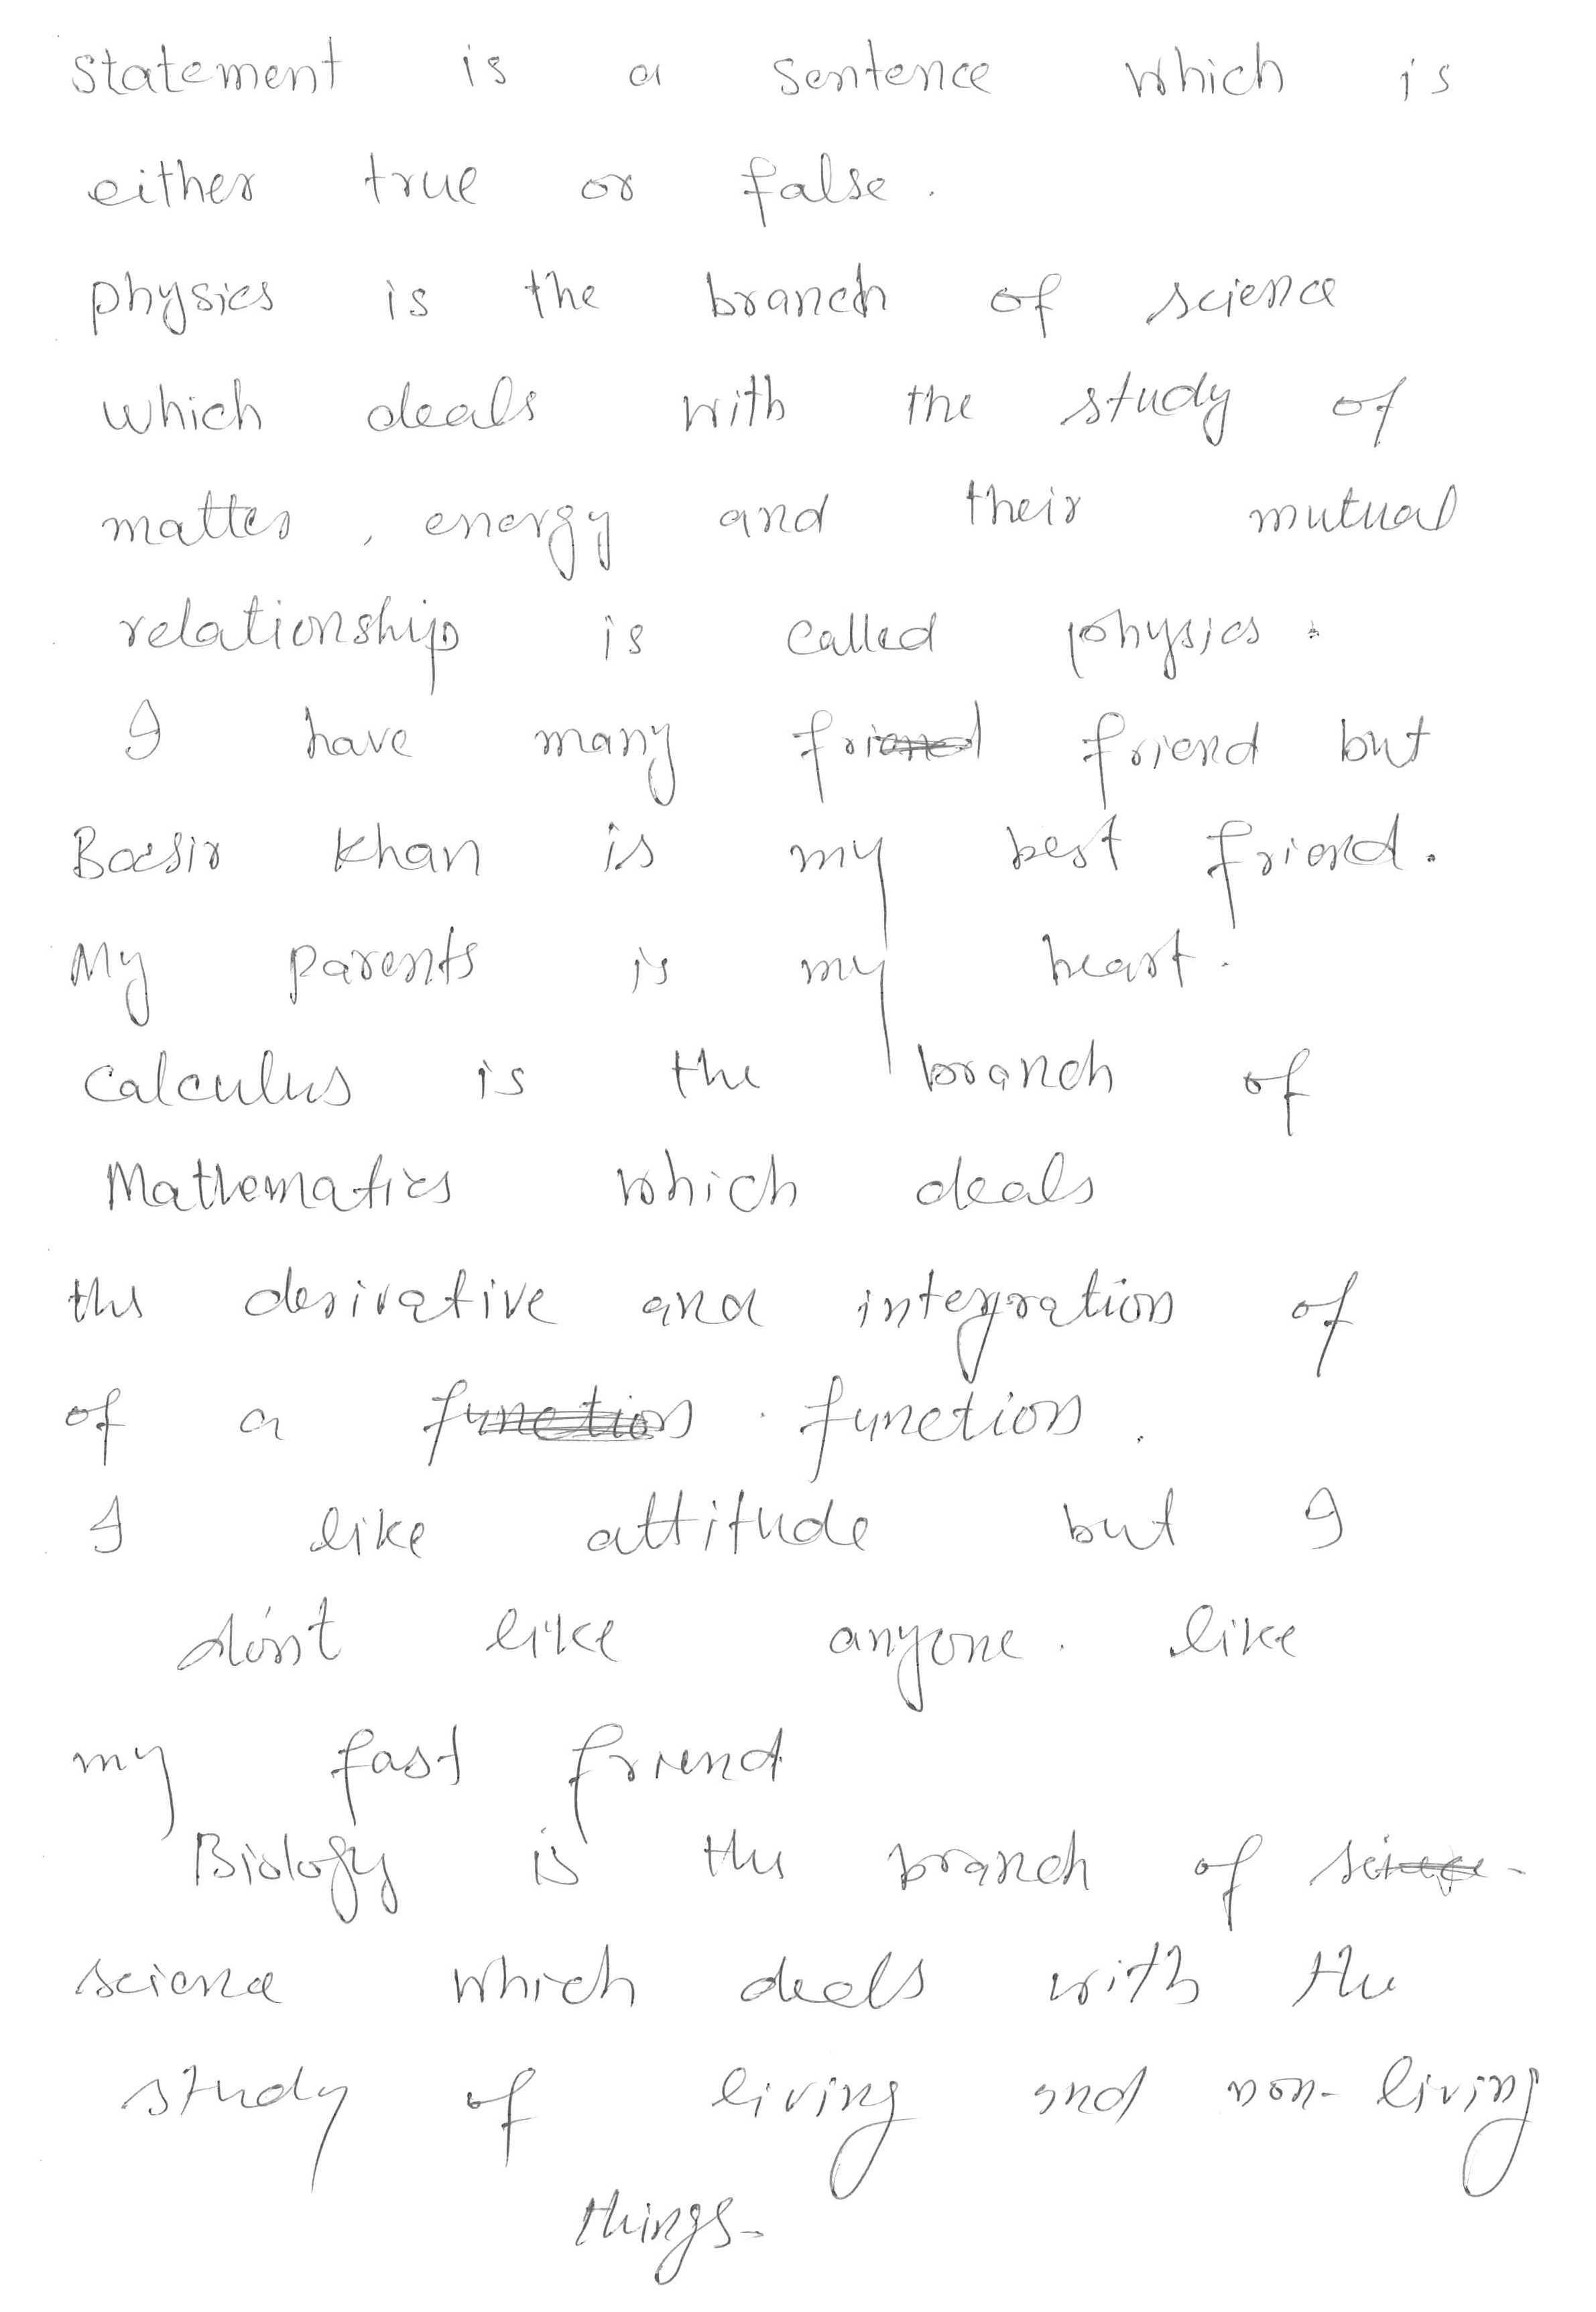 Statement is a sentence which is
either true or false.
physics is the branch of science
which deals with the study of
matter, energy and their mutual
relationship is called physics.
I have many friend friend but
Khan is my best friend.
My parents is my heart.
Calculus is the branch of
Mathematics which deals
the derivative and integration of
of a function function.
I like attitude but I
don't like anyone. like
my fast friend
Biology is the branch of
science which deals with the
study of living and non-living
things.